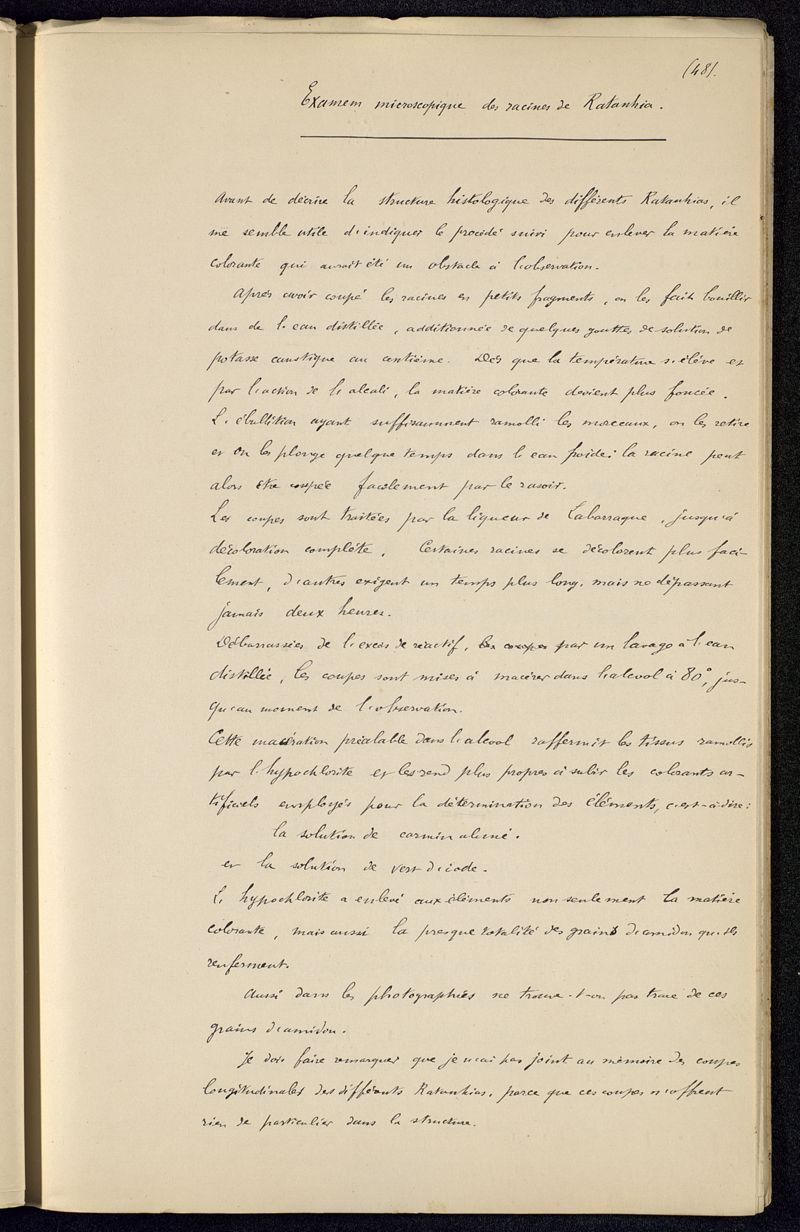 (48).
Examen microscopique des racines de Ratanhia.
Avant de décrire la structure histologique des différents Ratanhias, il
me semble utile d'indiquer le procédé suivi pour enlever la matière
colorante qui aurait été un obstacle à l'observation.
Après avoir coupé les racines en petits fragments, on les fait bouillir
dans de l'eau distillée, additionnée de quelques gouttes de solution de
potasse caustique au centième. Dès que la température s'élève et
par l'action de l'alcali, la matière colorante devient plus foncée.
L'ébullition ayant suffisamment ramolli les morceaux, on les retire
et on les plonge quelque temps dans l'eau froide: la racine peut
alors être coupée facilement par le rasoir.
Les coupes sont traitées par la liqueur de Labarraque, jusqu'à
décoloration complète. Certaines racines se décolorent plus faci-
lement, d'autres exigent un temps plus long, mais ne dépassant
jamais deux heures.
Débarrassées de l'excès de réactif, les coupes par un lavage à l'eau
distillée, les coupes sont mises à macérer dans l'alcool à 80°, jus-
qu'au moment de l'observation.
Cette macération préalable dans l'alcool raffermit les tissus ramollis
par l'hypochlorite et les rend plus propres à subir les colorants ar-
tificiels employés pour la détermination des éléments, c'est-à-dire:
la solution de carmin aluné.
et la solution de vert d'iode.
L'hypochlorite a enlevé aux éléments non seulement la matière
colorante, mais aussi la presque totalité des grains d'amidon qu'ils
renferment.
Aussi dans les photographies ne trouve-t-on pas trace de ces
grains d'amidon.
Je dois faire remarquer que je n'ai pas joint au mémoire des coupes
longitudinales des différents Ratanhias, parce que ces coupes n'offrent
rien de particulier dans la structure.